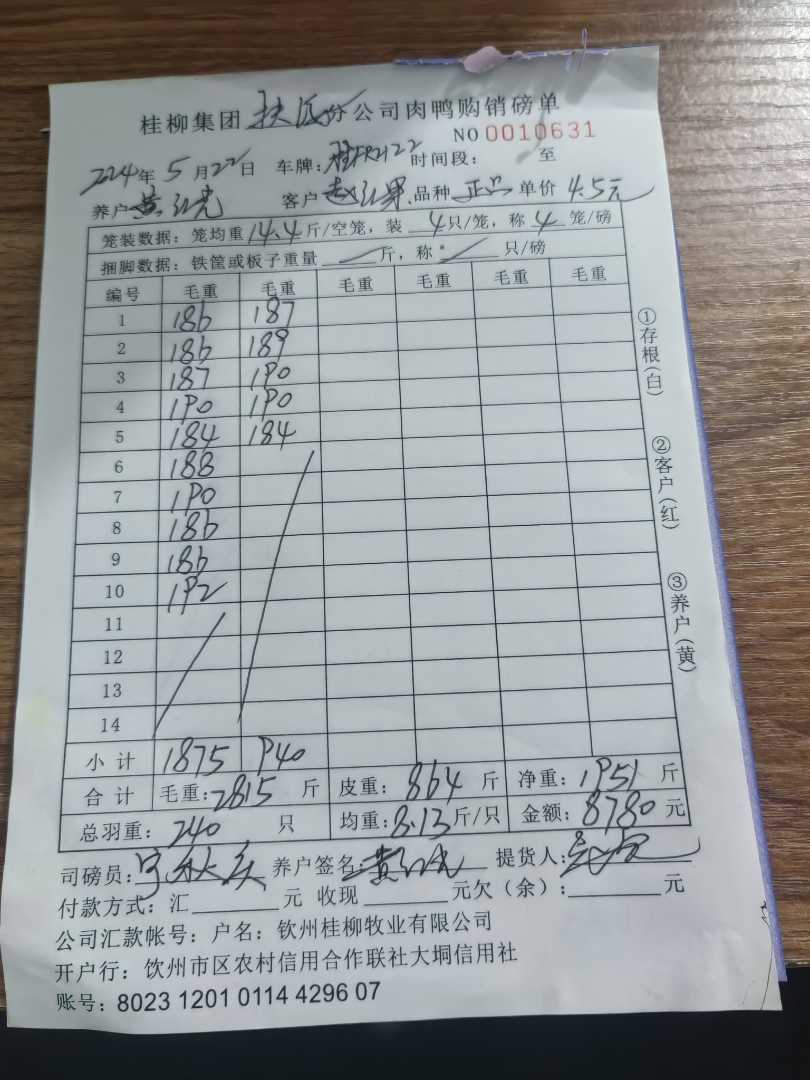 桂柳集团扶绥分公司肉鸭购销磅单
NO 0010631
2024年5月22日 车牌: 时间段: 至
养户 客户 品种 正品 单价 4.5元
笼装数据: 笼均重 14.4 斤/空笼, 装 4 只/笼, 称 4 笼/磅
捆脚数据: 铁筐或板子重量 / 斤, 称 / 只/磅
编号 毛重 毛重 毛重 毛重 毛重 毛重
1 186 187
2 186 189
3 187 190
4 190 190
5 184 184
6 188
7 190
8 186
9 186
10 192
11
12
13
14
小计 1875 940
合计 毛重:2815 斤 皮重: 864 斤 净重: 1951 斤
总羽重: 240 只 均重: 8.13 斤/只 金额: 8780 元
司磅员: 养户签名: 提货人:
付款方式: 汇 元 收现 元欠(余): 元
公司汇款帐号: 户名: 钦州桂柳牧业有限公司
开户行: 钦州市区农村信用合作联社大垌信用社
账号: 8023 1201 0114 4296 07
①存根(白)
②客户(红)
③养户(黄)